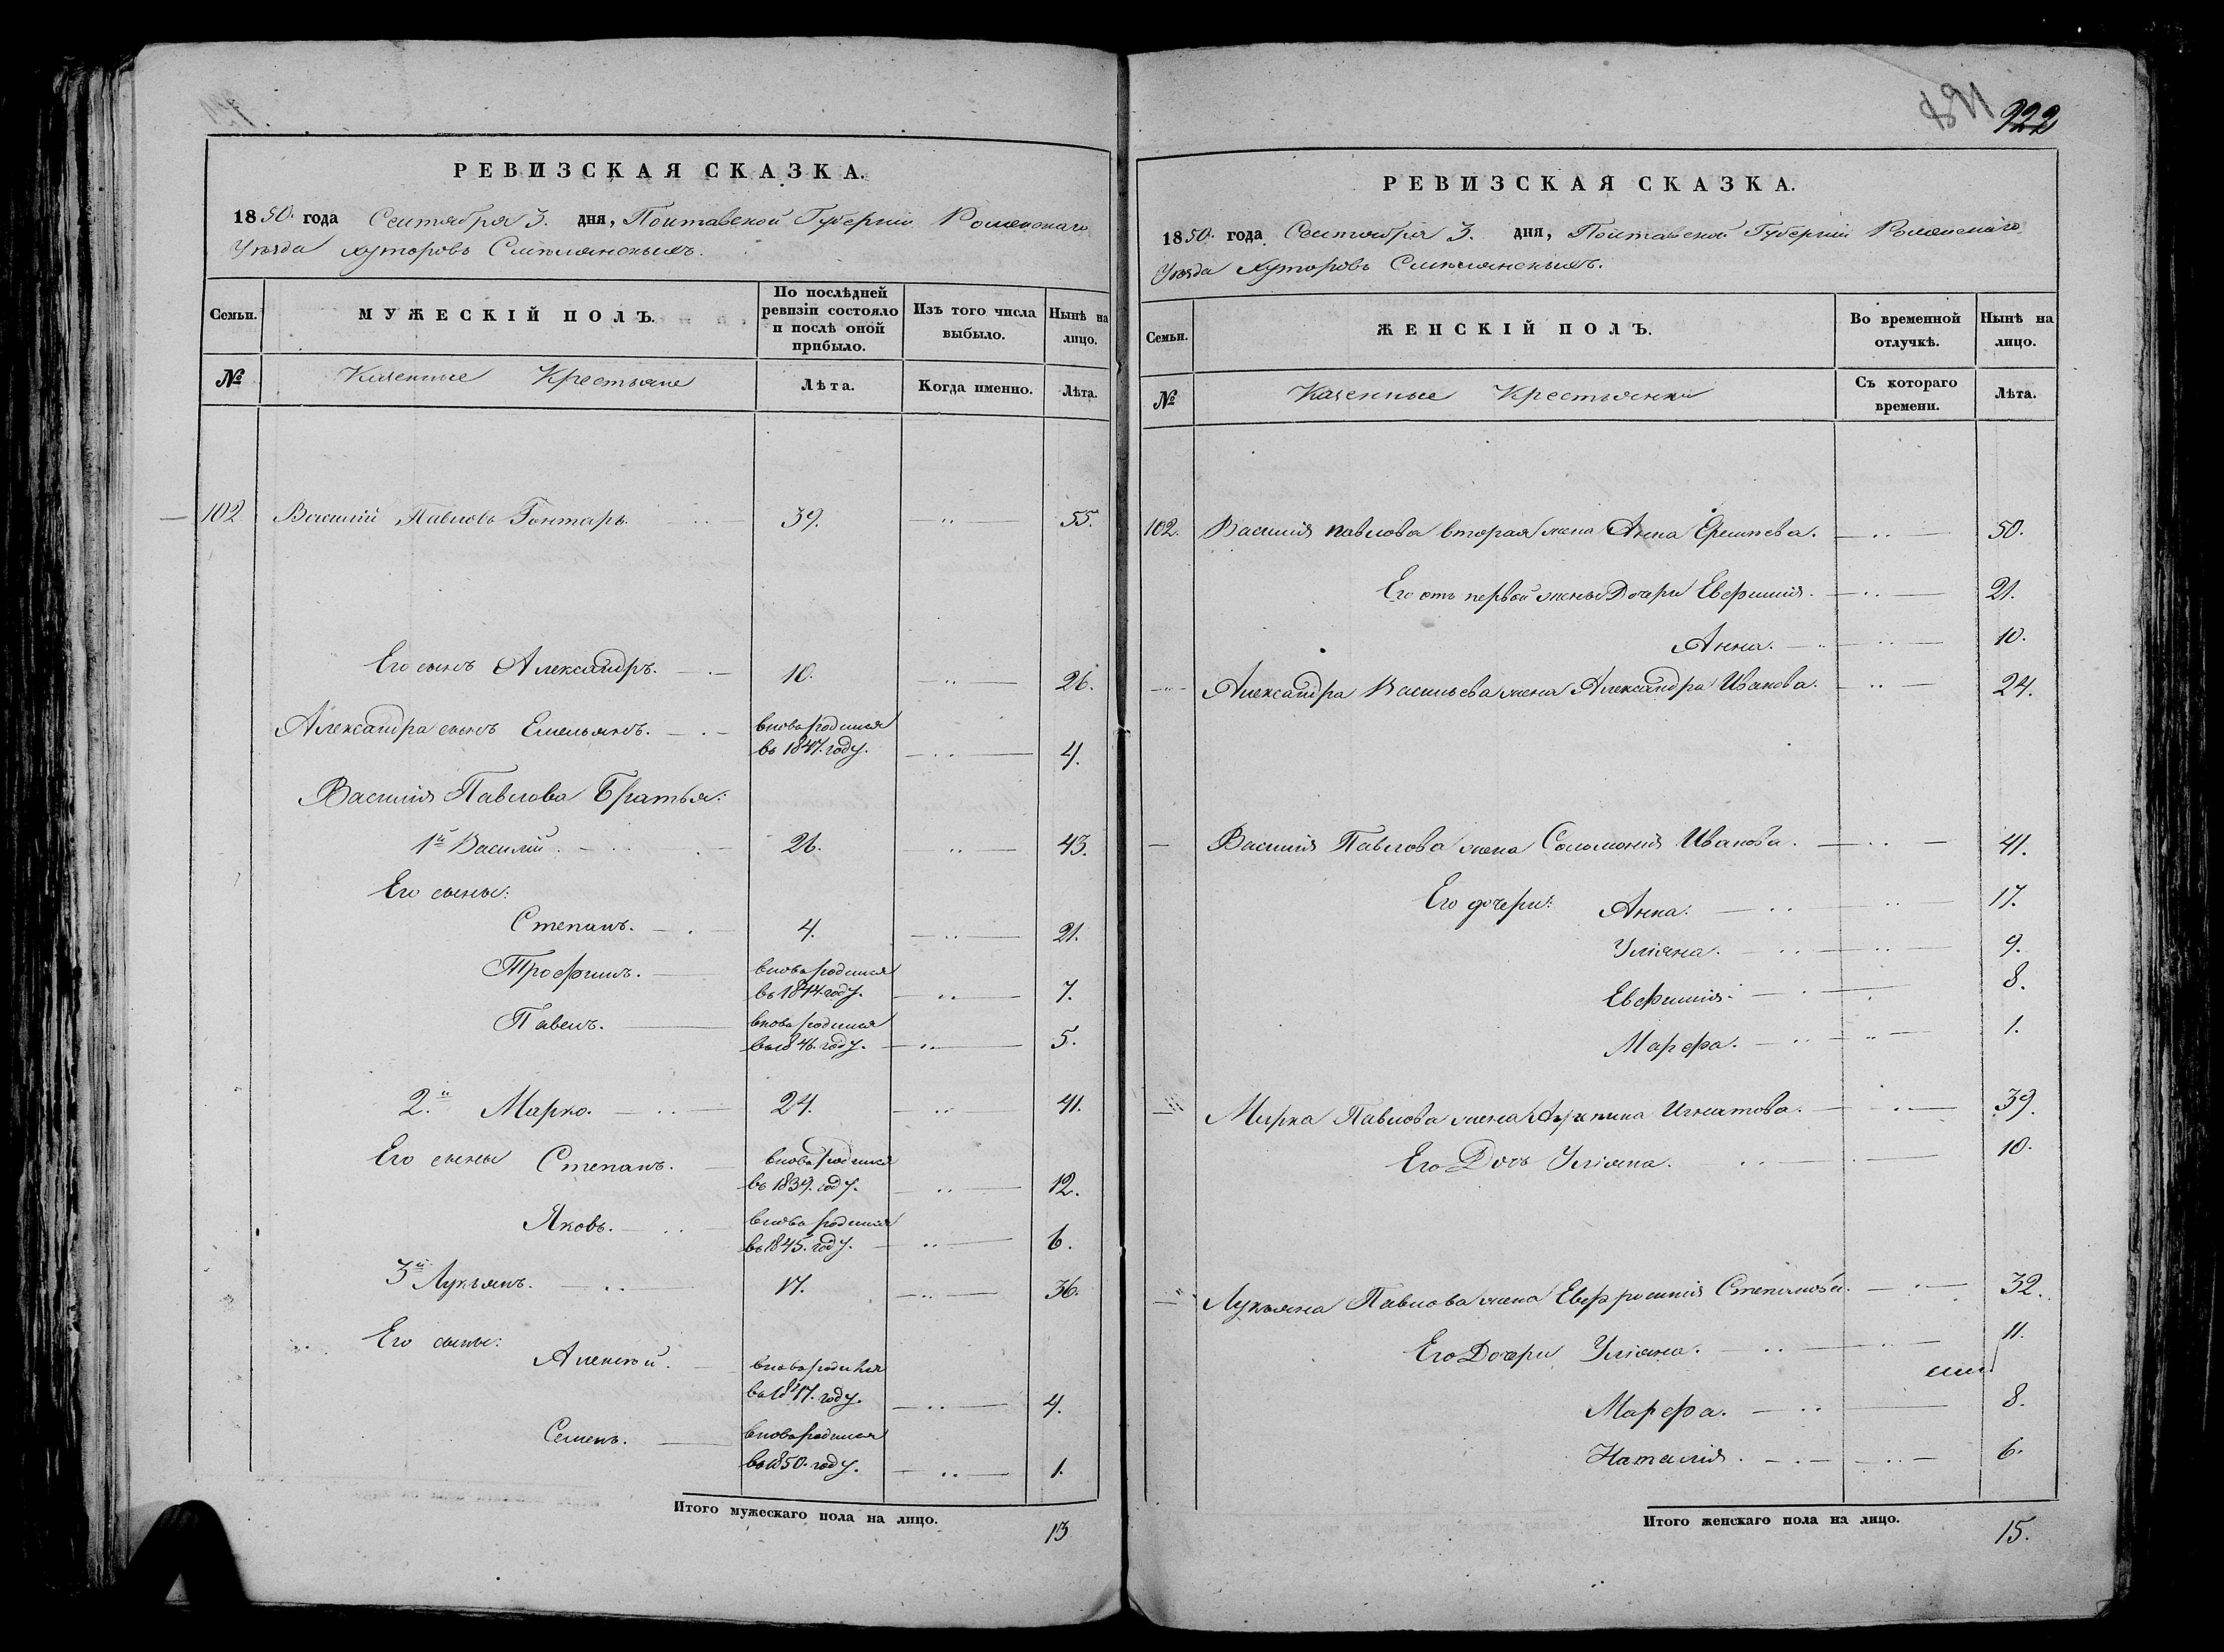 РЕВИЗСКАЯ СКАЗКА.
1850. года Сентября 3. дня, Полтавской Губерніи Роменскаго
Уѣзда хуторовъ Смѣлянскихъ.
Семьи.
МУЖЕСКІЙ ПОЛЪ.
По послѣдней
ревизіи состояло
и послѣ оной
прибыло.
Изъ того числа
выбыло.
Нынѣ на
лицо.
№
Казенные Крестьяне
Лѣта.
Когда именно.
Лѣта.
102 Василій Павловъ Гонтарь. 39. 55.
Его сынъ Александръ. 10. 26.
Александра сынъ Емельянъ. вновь родился
въ 1847. году. 4.
Василія Павлова Братья:
1й Василій. 26. 43.
Его сыны:
Степанъ. 4. 21.
Трофимъ. вновь родился
въ 1844. году. 7.
Павелъ. вновь родился
въ 1846. году. 5.
2.й Марко. 24. 41.
Его сыны Степанъ. вновь родился
въ 1839. году. 12.
Яковъ. вновь родился
въ 1845. году. 6.
3й Лукьянъ. 17. 36.
Его сыны:
Алексѣй. вновь родился
въ 1847. году. 4.
Семенъ. вновь родился
въ 1850. году. 1.
Итого мужескаго пола на лицо. 13
922
РЕВИЗСКАЯ СКАЗКА.
1850. года Сентября 3. дня, Полтавской Губерніи Роменскаго
Уѣзда Хуторовъ Смѣлянскихъ.
Семьи.
ЖЕНСКІЙ ПОЛЪ.
Во временной
отлучкѣ.
Нынѣ на
лицо.
№
Казенные Крестьянки
Съ котораго
времени.
Лѣта.
102. Василія Павлова вторая жена Анна 50.
Его отъ первой жены Дочери Евфимія. 21.
Анна. 10.
Александра Васильева жена Александра Иванова. 24.
Василія Павлова жена Соломонія Иванова. 41.
Его дочери: Анна. 17.
Уліяна. 9.
Евфимія. 8.
Марфа. 1.
Марка Павлова жена Агрипина Игнатова. 39.
Его Дочь Уліяна. 10.
Лукьяна Павлова жена Евфросинія Степанова. 32.
Его Дочери Уліяна. 11.
Марфа. 8.
Наталія. 6.
Итого женскаго пола на лицо. 15.